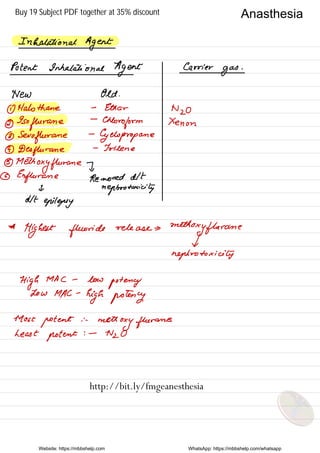 Buy 19 Subject PDF together at 35% discount
Anasthesia
Inhalational Agent
Potent Inhalational Agent
Carrier gas.
New
Old.
① Halothane - Ether
N₂O
② Isoflurane - Chloroform
Xenon
③ Sevoflurane - Cyclopropane
④ Desflurane - Trilene
⑤ Methoxyflurane
⑥ Enflurane
Removed d/t nephrotoxicity
↓
d/t epilepsy
* Highest fluoride release ⇒ methoxyflurane
↓
nephrotoxicity
High MAC - low potency
Low MAC - high potency
Most potent :- methoxyflurane
Least potent :- N₂O
http://bit.ly/fmgeanesthesia
Website: https://mbbshelp.com
WhatsApp: https://mbbshelp.com/whatsapp